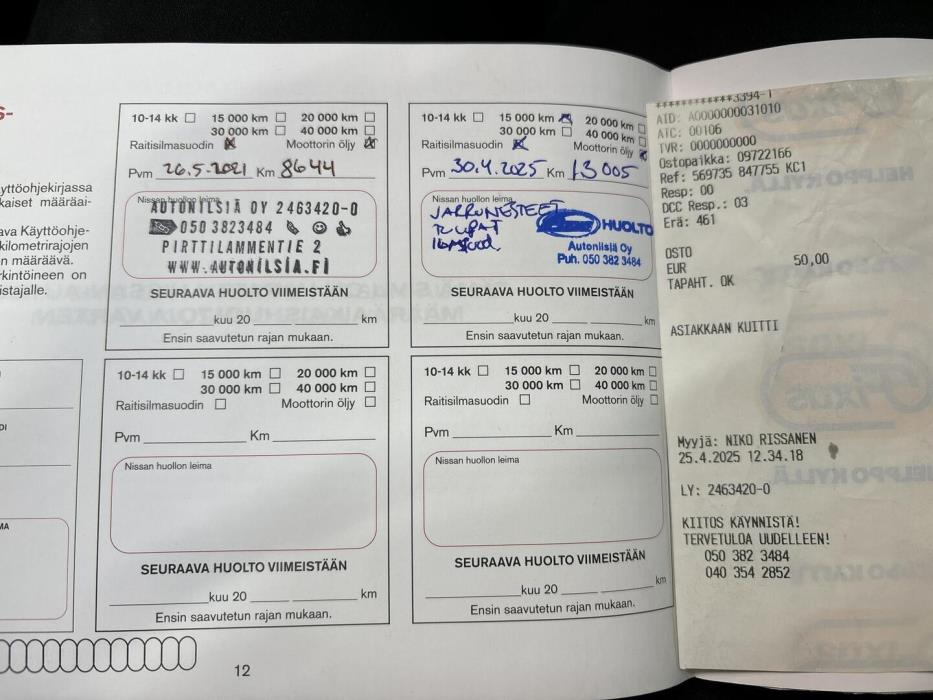 S-
yttöohjekirjassa
kaiset määräai-
ava Käyttöohje-
kilometrirajojen
n määräävä.
rkintöineen on
istajalle.
10-14 kk 15 000 km 20 000 km
30 000 km 40 000 km
Raitisilmasuodin Moottorin öljy
Pvm 26.5.2021 Km 8644
Nissan huollon leima
AUTONILSIÄ OY 2463420-0
050 3823484
PIRTTILAMMENTIE 2
WWW.AUTONILSIA.FI
SEURAAVA HUOLTO VIIMEISTÄÄN
kuu 20 km
Ensin saavutetun rajan mukaan.
10-14 kk 15 000 km 20 000 km
30 000 km 40 000 km
Raitisilmasuodin Moottorin öljy
Pvm 30.4.2025 Km 13005
Nissan huollon leima
JARRUNESTEET
TULPAT
HUOLTO
Autonilsiä Oy
Puh. 050 382 3484
SEURAAVA HUOLTO VIIMEISTÄÄN
kuu 20 km
Ensin saavutetun rajan mukaan.
10-14 kk 15 000 km 20 000 km
30 000 km 40 000 km
Raitisilmasuodin Moottorin öljy
Pvm Km
Nissan huollon leima
SEURAAVA HUOLTO VIIMEISTÄÄN
kuu 20 km
Ensin saavutetun rajan mukaan.
10-14 kk 15 000 km 20 000 km
30 000 km 40 000 km
Raitisilmasuodin Moottorin öljy
Pvm Km
Nissan huollon leima
SEURAAVA HUOLTO VIIMEISTÄÄN
kuu 20 km
Ensin saavutetun rajan mukaan.
12
************3394-1
AID: A0000000031010
ATC: 00106
TVR: 0000000000
Ostopaikka: 09722166
Ref: 569735 847755 KC1
Resp: 00
DCC Resp.: 03
Erä: 461
OSTO
EUR 50,00
TAPAHT. OK
ASIAKKAAN KUITTI
Myyjä: NIKO RISSANEN
25.4.2025 12.34.18
LY: 2463420-0
KIITOS KÄYNNISTÄ!
TERVETULOA UUDELLEEN!
050 382 3484
040 354 2852